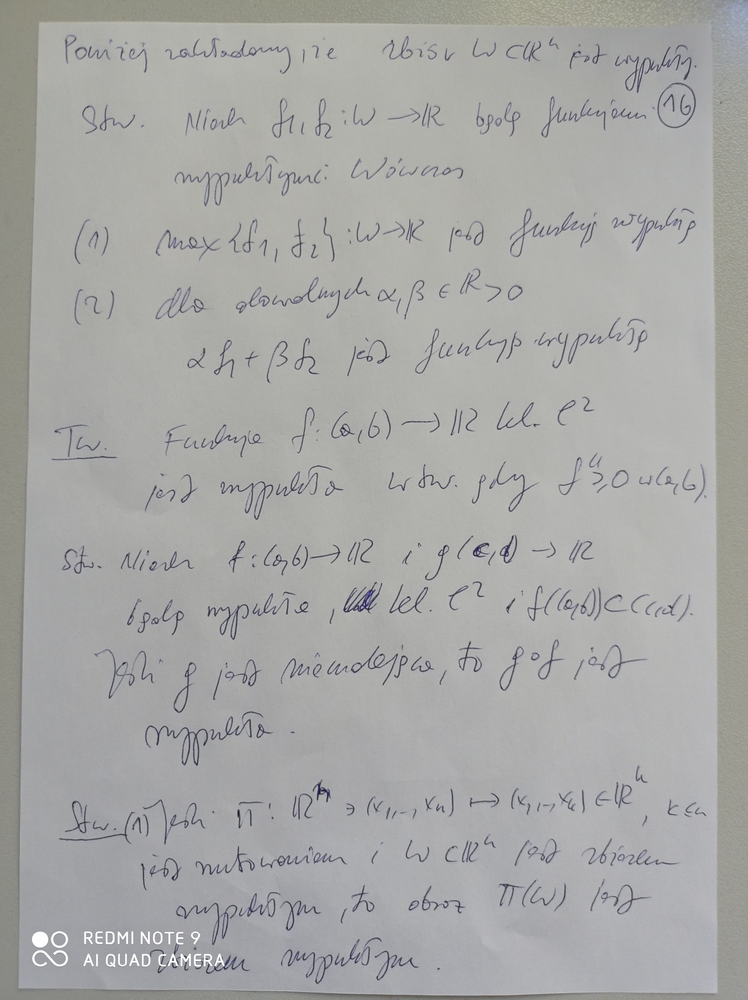 Poniżej zakładamy, że zbiór W ⊂ ℝⁿ jest wypukły.
16
Stw. Niech f₁, f₂ : W → ℝ będą funkcjami
wypukłymi. Wówczas
(1) max{f₁, f₂} : W → ℝ jest funkcją wypukłą
(2) dla dowolnych α, β ∈ ℝ>0
αf₁ + βf₂ jest funkcją wypukłą
Tw. Funkcja f : (a,b) → ℝ kl. C²
jest wypukła wtw. gdy f'' ≥ 0 w (a,b).
Stw. Niech f : (a,b) → ℝ i g (c,d) → ℝ
będą wypukłe, kl. C² i f((a,b)) ⊂ (c,d).
Jeśli g jest niemalejąca, to g∘f jest
wypukła.
Stw. (1) Jeśli Π : ℝⁿ ∋ (x₁,..,xₙ) ↦ (x₁,..,xₖ) ∈ ℝᵏ, k≤n
jest rzutowaniem i W ⊂ ℝⁿ jest zbiorem
wypukłym, to obraz Π(W) jest
zbiorem wypukłym.
REDMI NOTE 9
AI QUAD CAMERA